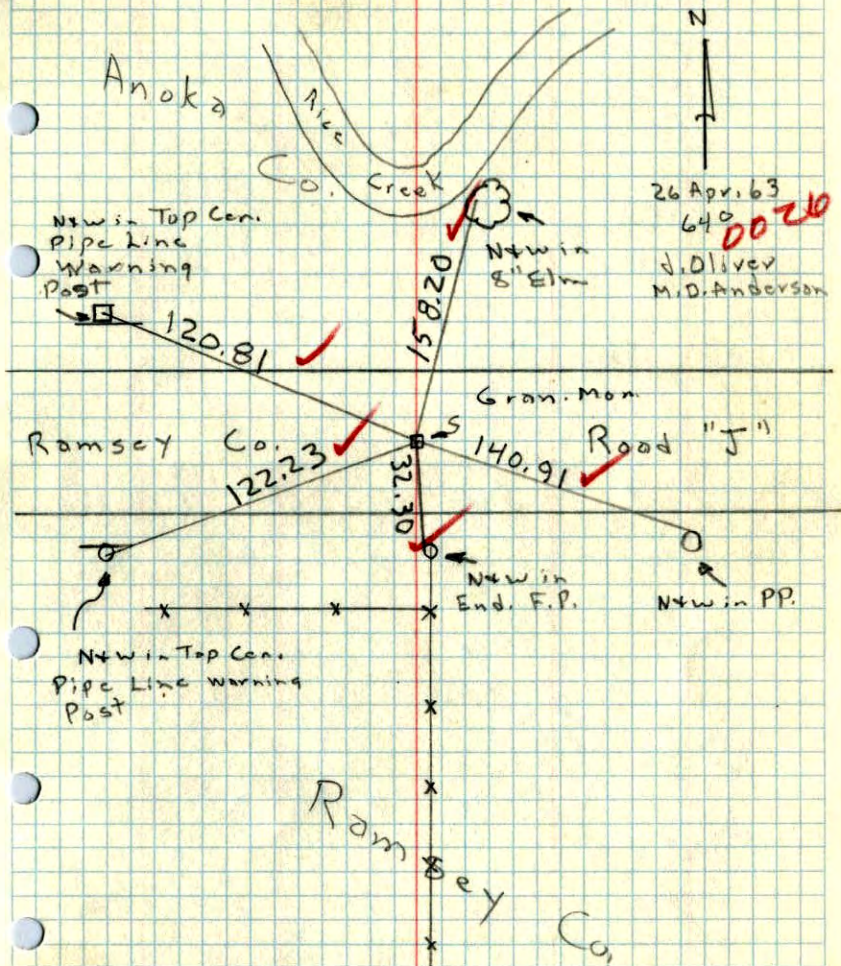 N
Anoka
Rice
Co. Creek
26 Apr. 63
64°
0026
J. Oliver
M.D. Anderson
N+W in Top Cen.
Pipe Line
Warning
Post
N+W in
8" Elm
120.81
158.20
Gran. Mon.
S
Ramsey Co.
Road "J"
122.23
32.30
140.91
N+W in
End. F.P.
N+W in PP.
N+W in Top Cen.
Pipe Line Warning
Post
Ramsey Co.